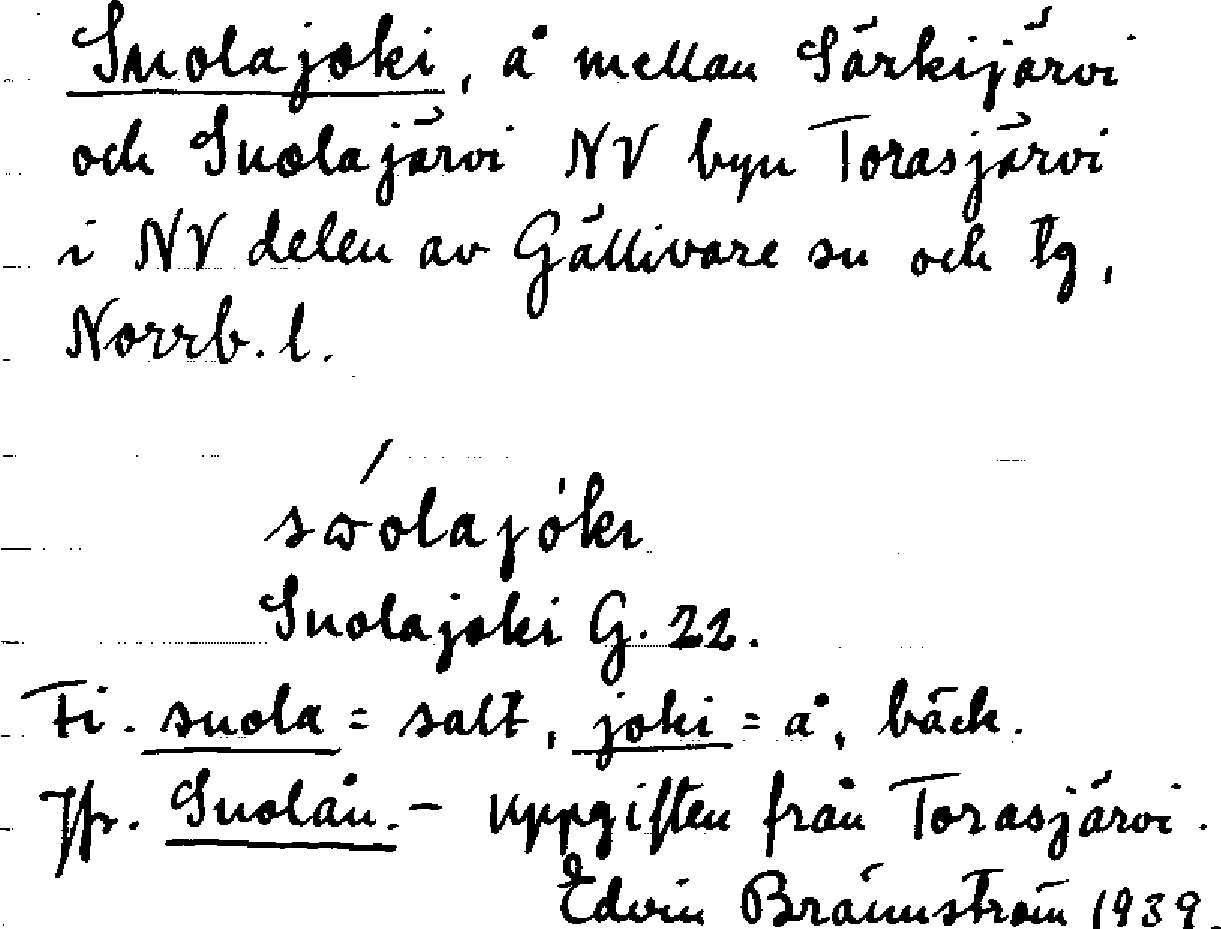 Suolajoki, å mellan Särkijärvi
och Suolajärvi NV byn Torasjärvi
i NV delen av Gällivare sn och tg,
Norrb. l.
Suolajoki G. 22.
Fi. suola = salt, joki = å, bäck.
Jfr. Suolån. – uppgiften från Torasjärvi.
Edvin Brännström 1939.